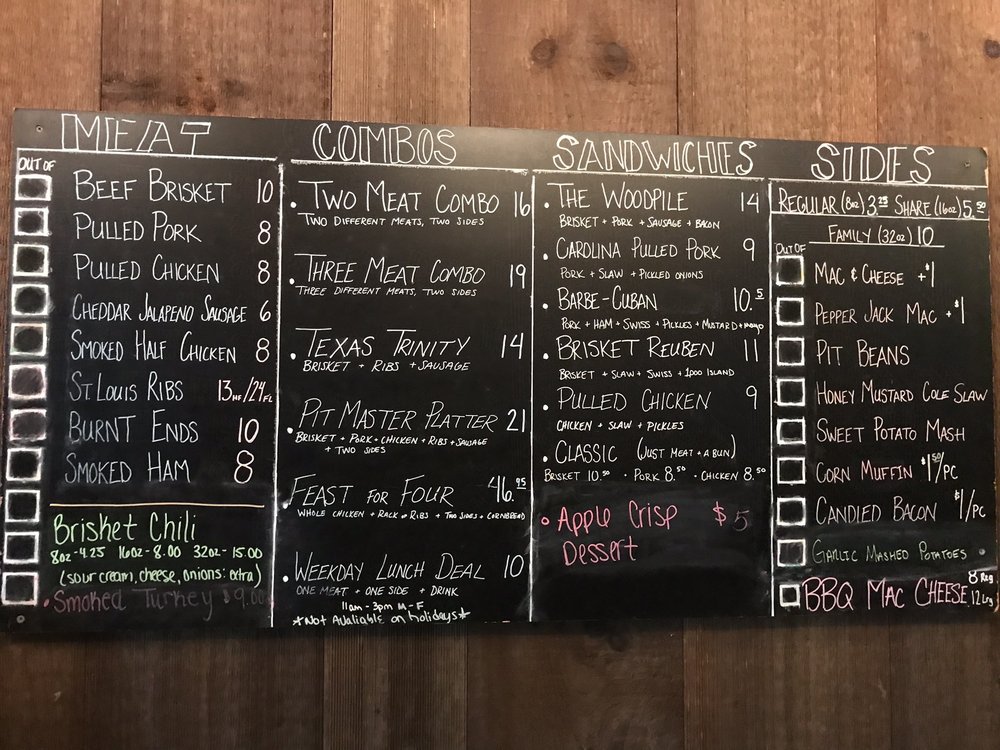 MEAT
OUT OF
BEEF BRISKET 10
PULLED PORK 8
PULLED CHICKEN 8
CHEDDAR JALAPENO SAUSAGE 6
SMOKED HALF CHICKEN 8
ST. LOUIS RIBS 13 HF/24 FL
BURNT ENDS 10
SMOKED HAM 8
Brisket Chili
8oz-4.25 16oz-8.00 32oz-15.00
(sour cream, cheese, onions: extra)
• Smoked Turkey $9.00
COMBOS
• TWO MEAT COMBO 16
TWO DIFFERENT MEATS, TWO SIDES
• THREE MEAT COMBO 19
THREE DIFFERENT MEATS, TWO SIDES
• TEXAS TRINITY 14
BRISKET + RIBS + SAUSAGE
• PIT MASTER PLATTER 21
BRISKET + PORK + CHICKEN + RIBS + SAUSAGE
+ TWO SIDES
• FEAST FOR FOUR $46.95
WHOLE CHICKEN + RACK OF RIBS + TWO SIDES + CORNBREAD
• WEEKDAY LUNCH DEAL 10
ONE MEAT + ONE SIDE + DRINK
11am - 3pm M - F
*Not Avaliable on holidays*
SANDWICHES
• THE WOODPILE 14
BRISKET + PORK + SAUSAGE + BACON
• CAROLINA PULLED PORK 9
PORK + SLAW + PICKLED ONIONS
• BARBE-CUBAN 10.5
PORK + HAM + SWISS + PICKLES + MUSTARD + mayo
• BRISKET REUBEN 11
BRISKET + SLAW + SWISS + 1,000 ISLAND
• PULLED CHICKEN 9
CHICKEN + SLAW + PICKLES
• CLASSIC (JUST MEAT + A BUN)
BRISKET 10.50 · PORK 8.50 · CHICKEN 8.50
• Apple Crisp $5
Dessert
SIDES
REGULAR (8oz) 3.25 SHARE (16oz) 5.50
FAMILY (32oz) 10
OUT OF
MAC & CHEESE +$1
PEPPER JACK MAC +$1
PIT BEANS
HONEY MUSTARD COLE SLAW
SWEET POTATO MASH
CORN MUFFIN $1.50/PC
CANDIED BACON $1/PC
GARLIC MASHED POTATOES
BBQ MAC CHEESE 8 Reg
12 Lrg